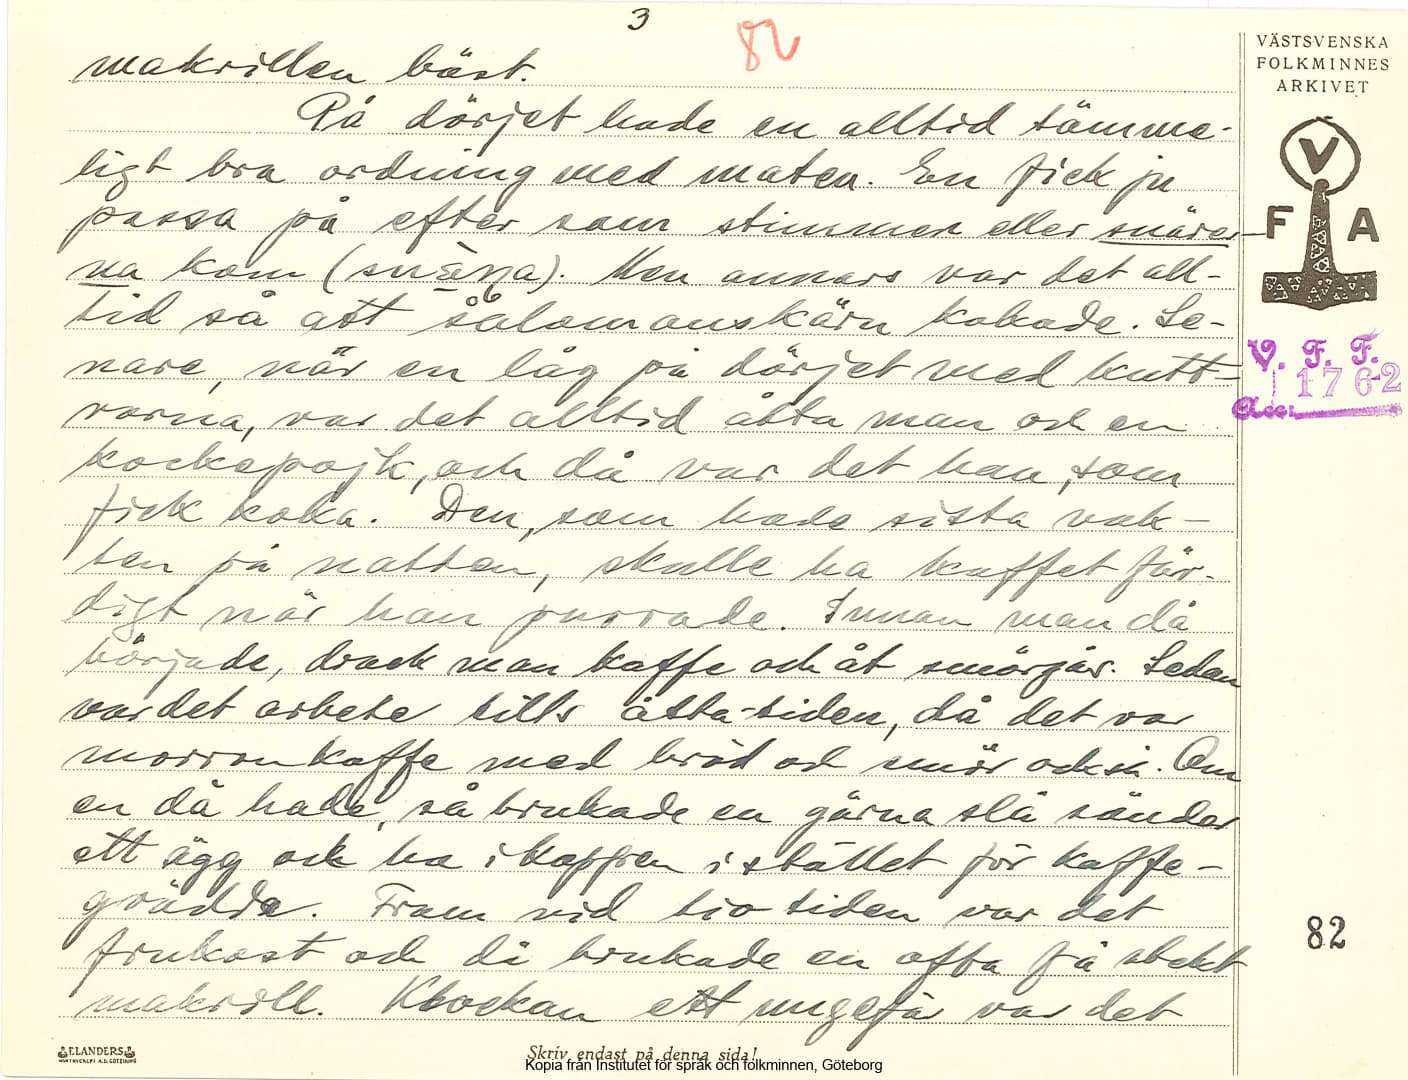 3
82
VÄSTSVENSKA
FOLKMINNES
ARKIVET
V
F A
V. F. F.
1762
Acc:
makrillen bäst.
På dörjet hade en alltid tämme-
ligt bra ordning med maten. En fick ju
passa på efter som stimmen eller snärer-
na kom (snäna). Men annars var det all-
tid så att sålomanskärn kokade. Se-
nare, när en låg på dörjet med kutt-
rarna, var det alltid åtta man och en
kockepojk, och då var det han, som
fick koka. Den, som hade sista vak-
ten på natten, skulle ha kaffet fär-
digt när han purrade. Innan man då
började, drack man kaffe och åt smörgås. Sedan
var det arbete tills åtta-tiden, då det var
morronkaffe med bröd och smör också. Om
en då hade, så brukade en gärna slå sönder
ett ägg och ha i koppen i stället för kaffe-
grädde. Fram vid tio tiden var det
frukost och då brukade en ofta få stekt
makrill. Klockan ett ungefär var det
82
ELANDERS
BOKTRYCKERI A.B. GÖTEBORG
Skriv endast på denna sida!
Kopia från Institutet för språk och folkminnen, Göteborg